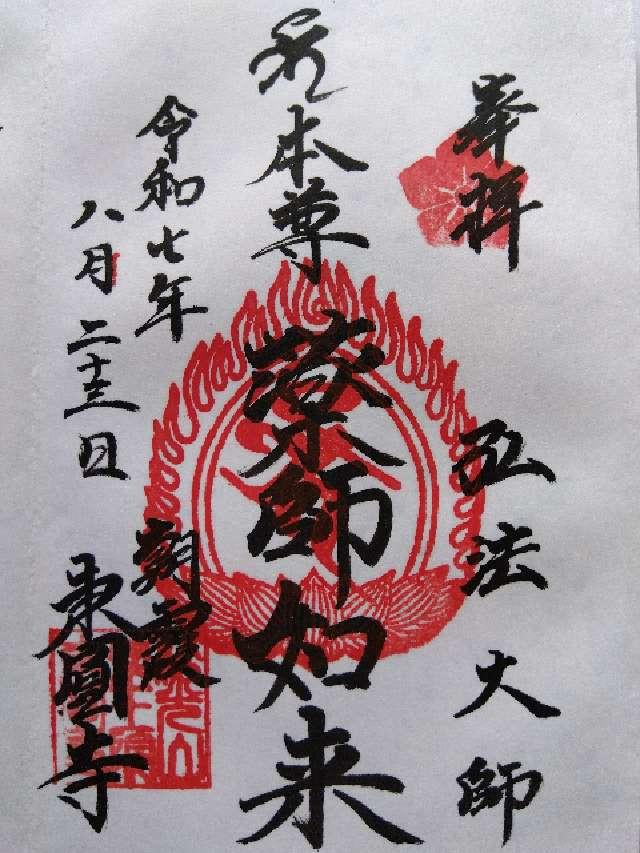 奉拝
弘法大師
本尊
薬師如来
令和七年
八月二十三日
朝霞
東圓寺